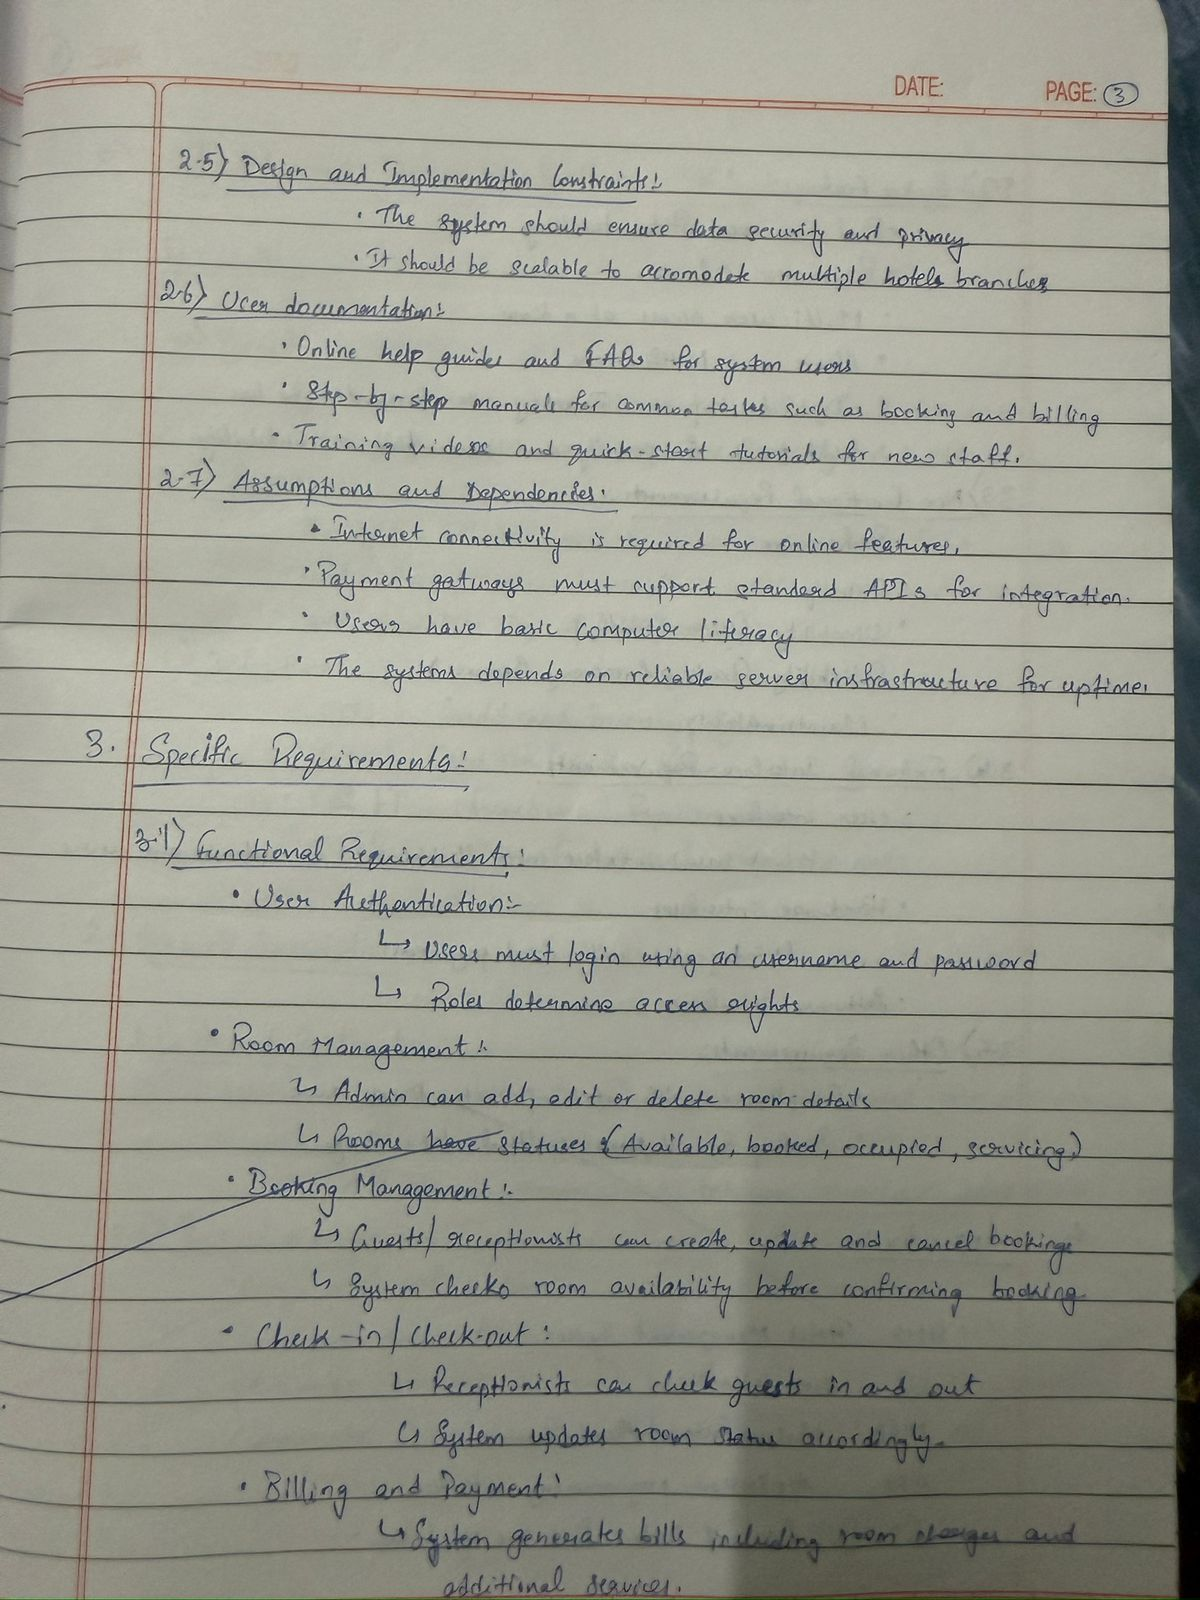 DATE: PAGE: 3
2.5) Design and Implementation Constraints:
• The system should ensure data security and privacy
• It should be scalable to accomodate multiple hotels branches
2.6) User documentation:
• Online help guides and FAQs for system users
• Step-by-step manuals for common tasks such as booking and billing
• Training videos and quick-start tutorials for new staff.
2.7) Assumptions and Dependencies:
• Internet connectivity is required for online features.
• Payment gatways must support standard APIs for integration.
• Users have basic computer literacy
• The systems depends on reliable server insfrastructure for uptime.
3. Specific Requirements:
3.1) Functional Requirements:
• User Authentication:-
↳ Users must login using an username and password
↳ Roles determine access rights
• Room Management :-
↳ Admin can add, edit or delete room details
↳ Rooms have statuses (Available, booked, occupied, servicing)
• Booking Management :-
↳ Guests/receptionists can create, update and cancel bookings
↳ System checks room availability before confirming booking
• Check-in/Check-out :
↳ Receptionists can check guests in and out
↳ System updates room status accordingly.
• Billing and Payment:
↳ System generates bills including room charges and
additional services.